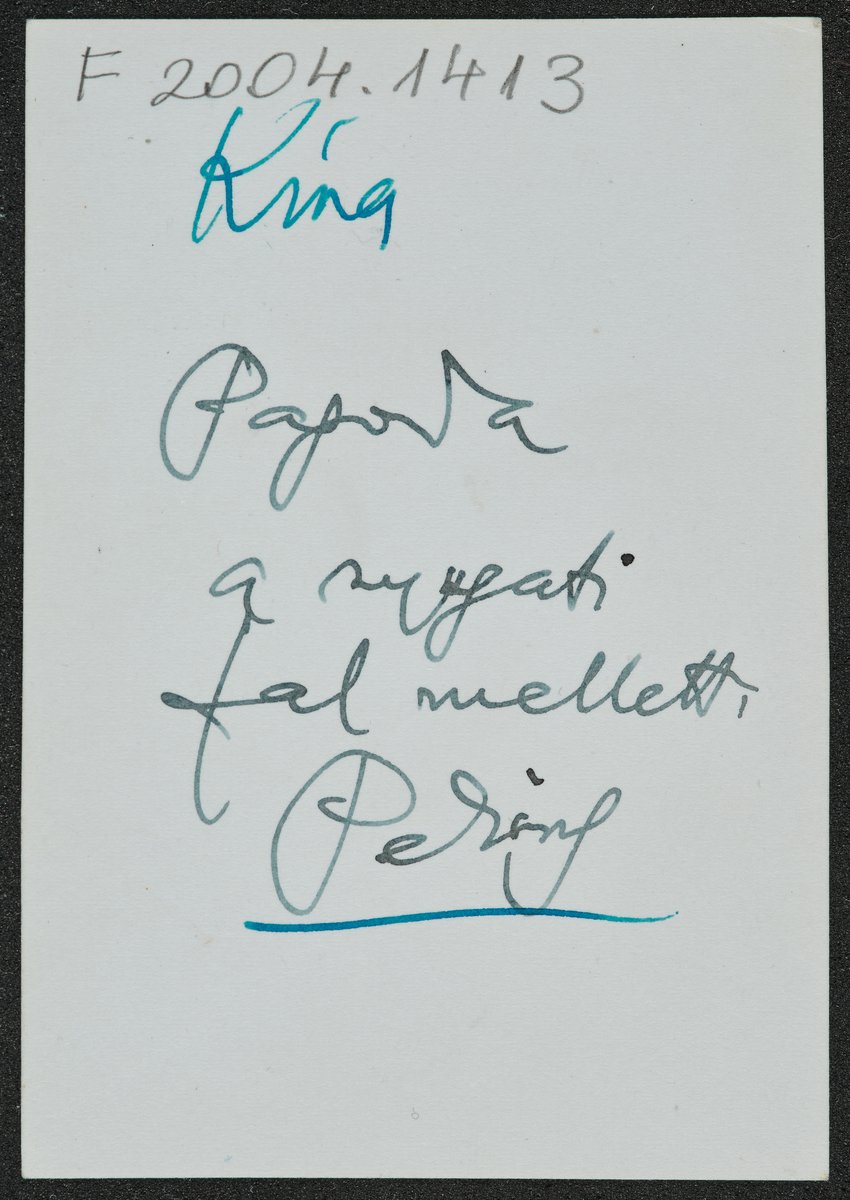 F 2004.1413
Kína
Pagoda
a nyugati
fal mellett,
Peking